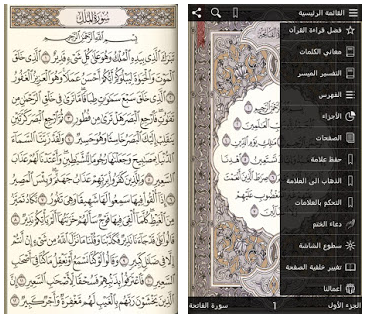 سُورَةُ المُلْكِ
بِسْمِ اللَّهِ الرَّحْمَٰنِ الرَّحِيمِ
تَبَارَكَ الَّذِي بِيَدِهِ الْمُلْكُ وَهُوَ عَلَىٰ كُلِّ شَيْءٍ قَدِيرٌ ١ الَّذِي خَلَقَ
الْمَوْتَ وَالْحَيَاةَ لِيَبْلُوَكُمْ أَيُّكُمْ أَحْسَنُ عَمَلًا وَهُوَ الْعَزِيزُ الْغَفُورُ ٢
الَّذِي خَلَقَ سَبْعَ سَمَاوَاتٍ طِبَاقًا مَّا تَرَىٰ فِي خَلْقِ الرَّحْمَٰنِ مِن
تَفَاوُتٍ فَارْجِعِ الْبَصَرَ هَلْ تَرَىٰ مِن فُطُورٍ ٣ ثُمَّ ارْجِعِ الْبَصَرَ كَرَّتَيْنِ
يَنقَلِبْ إِلَيْكَ الْبَصَرُ خَاسِئًا وَهُوَ حَسِيرٌ ٤ وَلَقَدْ زَيَّنَّا السَّمَاءَ
الدُّنْيَا بِمَصَابِيحَ وَجَعَلْنَاهَا رُجُومًا لِّلشَّيَاطِينِ وَأَعْتَدْنَا لَهُمْ عَذَابَ
السَّعِيرِ ٥ وَلِلَّذِينَ كَفَرُوا بِرَبِّهِمْ عَذَابُ جَهَنَّمَ وَبِئْسَ الْمَصِيرُ ٦
إِذَا أُلْقُوا فِيهَا سَمِعُوا لَهَا شَهِيقًا وَهِيَ تَفُورُ ٧ تَكَادُ تَمَيَّزُ مِنَ
الْغَيْظِ كُلَّمَا أُلْقِيَ فِيهَا فَوْجٌ سَأَلَهُمْ خَزَنَتُهَا أَلَمْ يَأْتِكُمْ نَذِيرٌ ٨
قَالُوا بَلَىٰ قَدْ جَاءَنَا نَذِيرٌ فَكَذَّبْنَا وَقُلْنَا مَا نَزَّلَ اللَّهُ مِن شَيْءٍ إِنْ أَنتُمْ
إِلَّا فِي ضَلَالٍ كَبِيرٍ ٩ وَقَالُوا لَوْ كُنَّا نَسْمَعُ أَوْ نَعْقِلُ مَا كُنَّا فِي أَصْحَابِ
السَّعِيرِ ١٠ فَاعْتَرَفُوا بِذَنبِهِمْ فَسُحْقًا لِّأَصْحَابِ السَّعِيرِ ١١
إِنَّ الَّذِينَ يَخْشَوْنَ رَبَّهُم بِالْغَيْبِ لَهُم مَّغْفِرَةٌ وَأَجْرٌ كَبِيرٌ ١٢
القائمة الرئيسية
فضل قراءة القرآن
معاني الكلمات
التفسير الميسر
الفهرس
الأجزاء
الصفحات
حفظ علامة
الذهاب الى العلامة
التحكم بالعلامات
دعاء الختم
سطوع الشاشة
تغيير خلفية الصفحة
أعمالنا
الجزء الأول 1 سورة الفاتحة